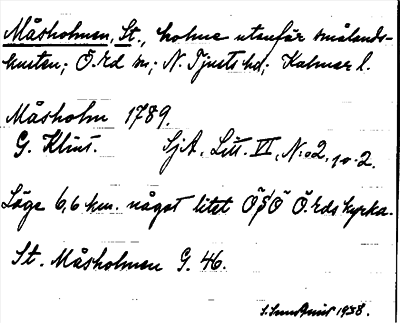 Måsholmen, St., holme utanför smålands-
kusten; Ö. rd sn; N. Tjusts hd; Kalmar l.
Måsholm 1789.
G. Klint. SjA. Litt. VI, N:o 2, 10. 2.
Läge 6,6 km. något litet ÖSÖ Ö. rds kyrka.
St. Måsholmen G. 46.
1938.